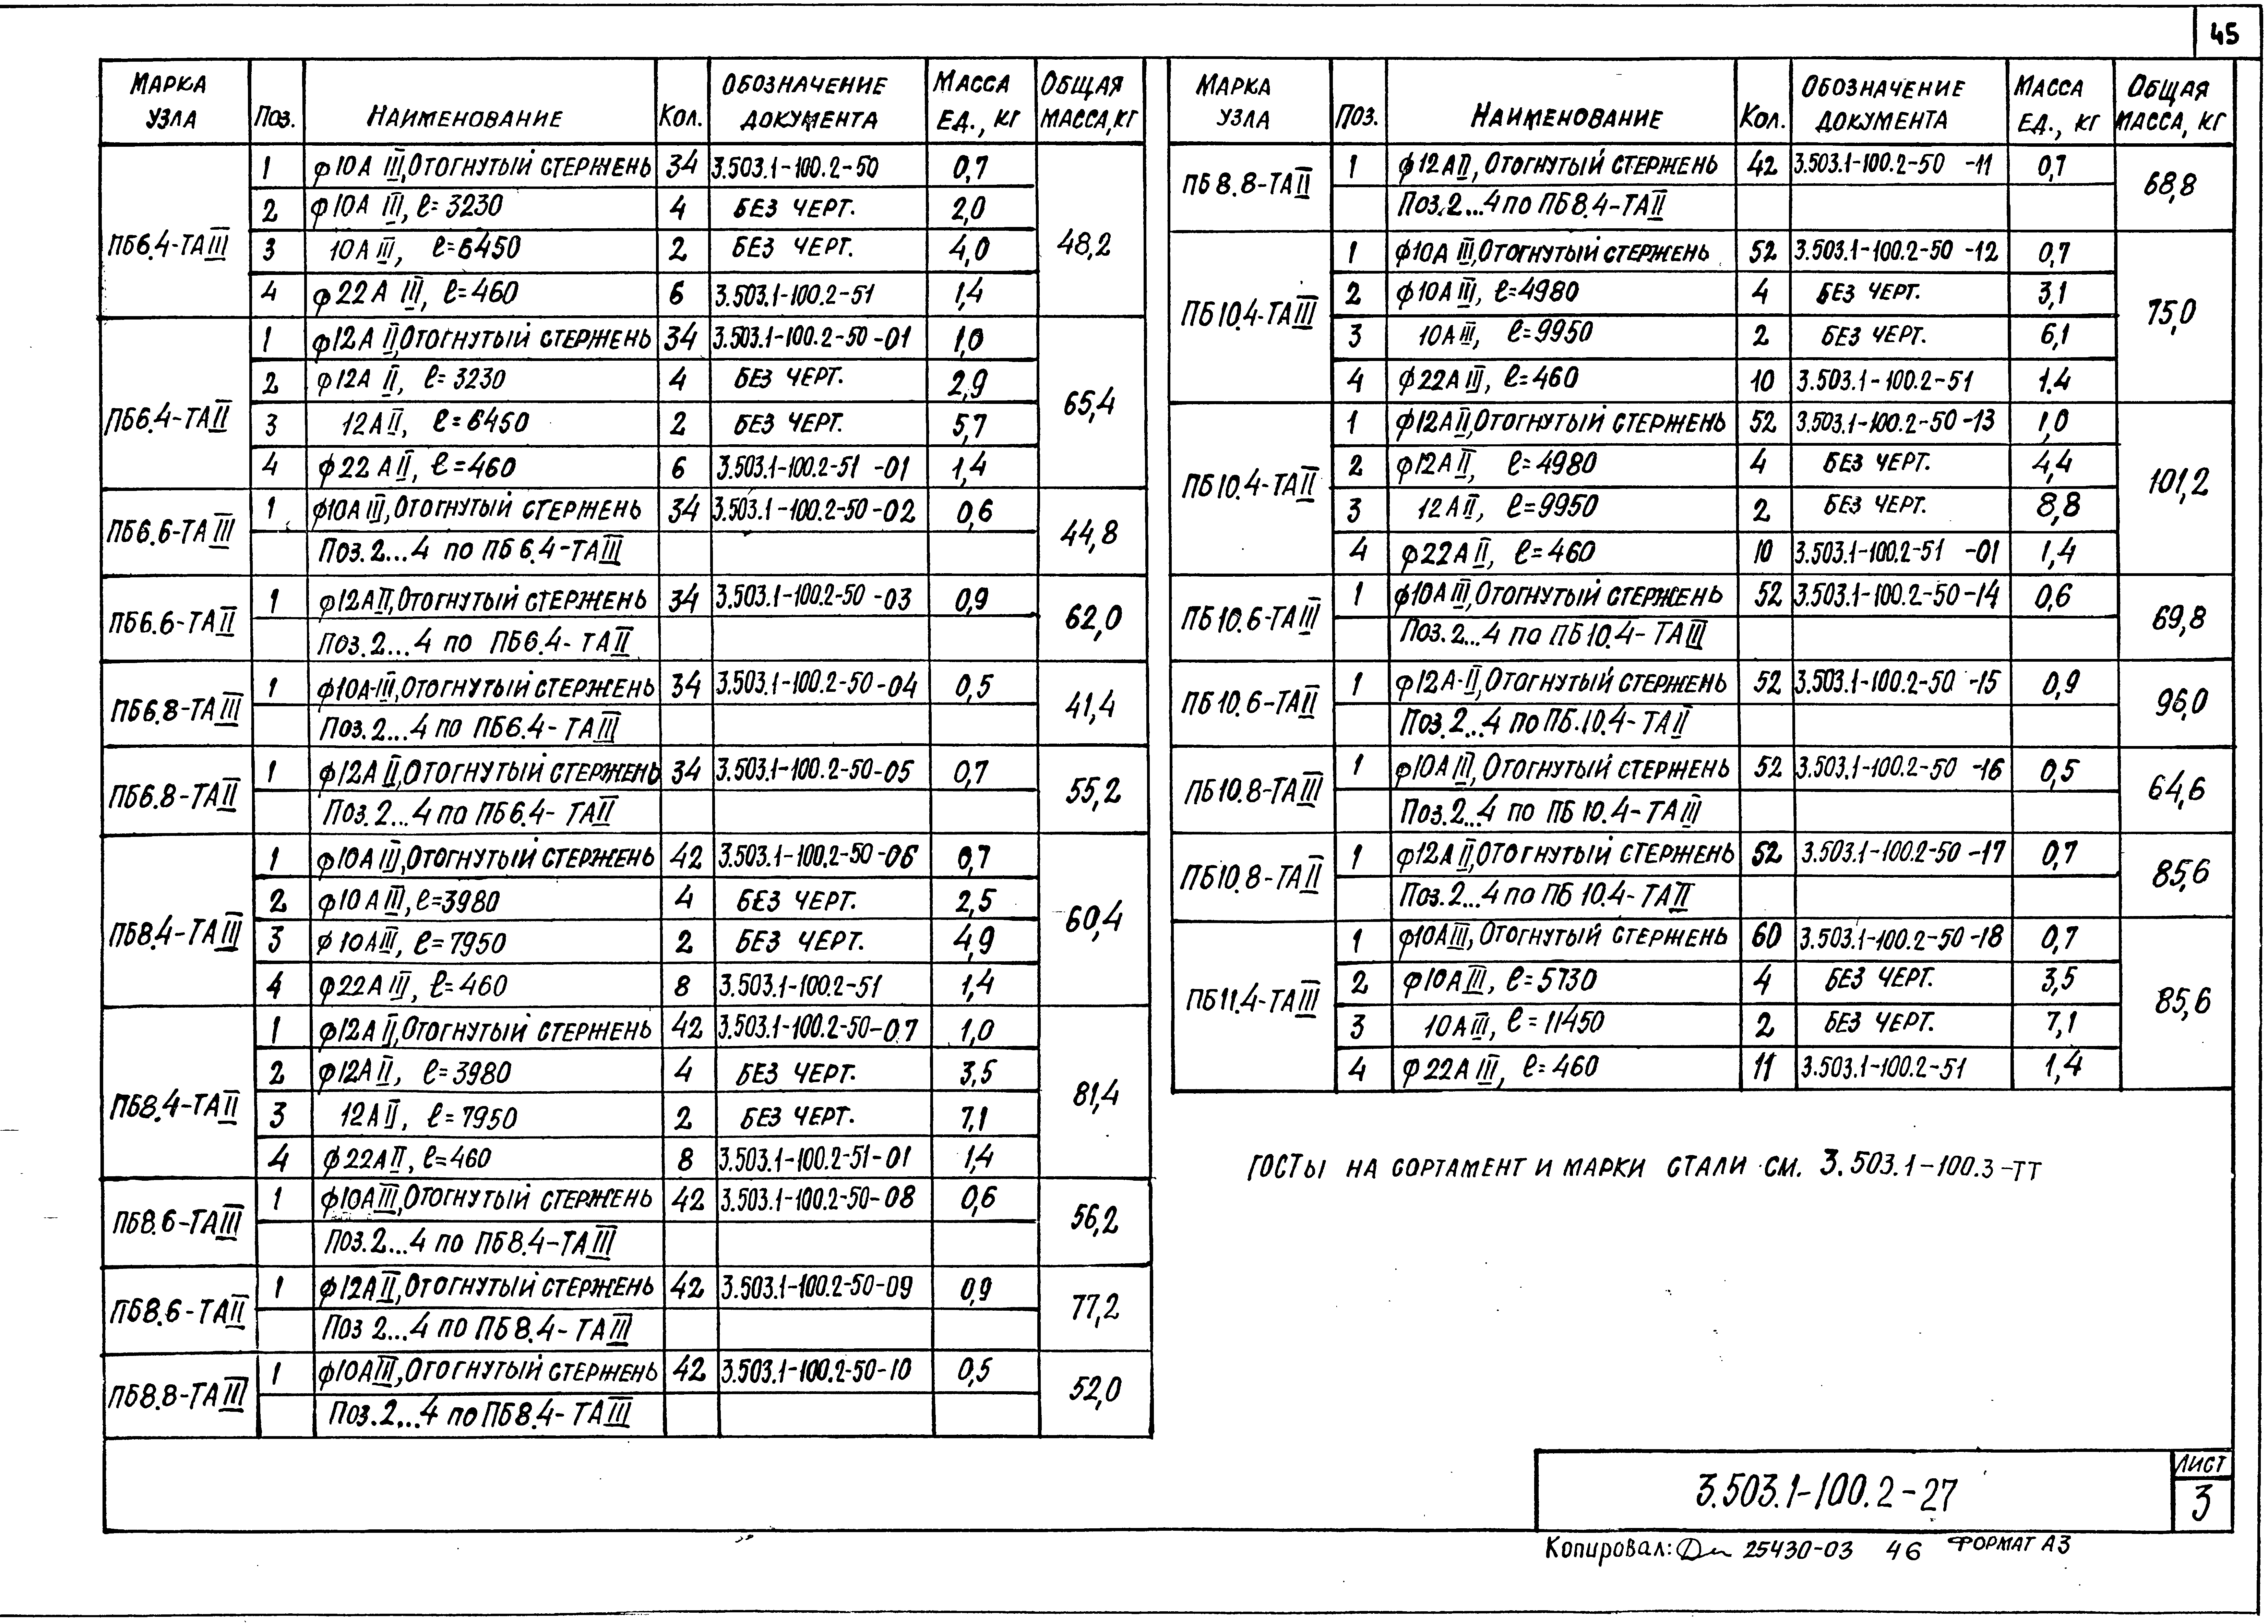 45
МАРКА УЗЛА ПОЗ. НАИМЕНОВАНИЕ КОЛ. ОБОЗНАЧЕНИЕ ДОКУМЕНТА МАССА ЕД., КГ ОБЩАЯ МАССА, КГ
ПБ6.4-ТАIII 1 ф10А III, ОТОГНУТЫЙ СТЕРЖЕНЬ 34 3.503.1-100.2-50 0,7 48,2
2 ф10А III, ℓ=3230 4 БЕЗ ЧЕРТ. 2,0
3 10А III, ℓ=6450 2 БЕЗ ЧЕРТ. 4,0
4 ф22А III, ℓ=460 6 3.503.1-100.2-51 1,4
ПБ6.4-ТАII 1 ф12А II, ОТОГНУТЫЙ СТЕРЖЕНЬ 34 3.503.1-100.2-50-01 1,0 65,4
2 ф12А II, ℓ=3230 4 БЕЗ ЧЕРТ. 2,9
3 12АII, ℓ=6450 2 БЕЗ ЧЕРТ. 5,7
4 ф22 АII, ℓ=460 6 3.503.1-100.2-51 -01 1,4
ПБ6.6-ТАIII 1 ф10АIII, ОТОГНУТЫЙ СТЕРЖЕНЬ 34 3.503.1-100.2-50-02 0,6 44,8
ПОЗ. 2...4 ПО ПБ6.4-ТАIII
ПБ6.6-ТАII 1 ф12АII, ОТОГНУТЫЙ СТЕРЖЕНЬ 34 3.503.1-100.2-50 -03 0,9 62,0
ПОЗ. 2...4 ПО ПБ6.4-ТАII
ПБ6.8-ТАIII 1 ф10А-III, ОТОГНУТЫЙ СТЕРЖЕНЬ 34 3.503.1-100.2-50-04 0,5 41,4
ПОЗ. 2...4 ПО ПБ6.4-ТАIII
ПБ6.8-ТАII 1 ф12А II, ОТОГНУТЫЙ СТЕРЖЕНЬ 34 3.503.1-100.2-50-05 0,7 55,2
ПОЗ. 2...4 ПО ПБ6.4-ТАII
ПБ8.4-ТАIII 1 ф10А III, ОТОГНУТЫЙ СТЕРЖЕНЬ 42 3.503.1-100.2-50-06 0,7 60,4
2 ф10 АIII, ℓ=3980 4 БЕЗ ЧЕРТ. 2,5
3 ф10АIII, ℓ=7950 2 БЕЗ ЧЕРТ. 4,9
4 ф22А III, ℓ=460 8 3.503.1-100.2-51 1,4
ПБ8.4-ТАII 1 ф12А II, ОТОГНУТЫЙ СТЕРЖЕНЬ 42 3.503.1-100.2-50-07 1,0 81,4
2 ф12А II, ℓ=3980 4 БЕЗ ЧЕРТ. 3,5
3 12АII, ℓ=7950 2 БЕЗ ЧЕРТ. 7,1
4 ф22АII, ℓ=460 8 3.503.1-100.2-51-01 1,4
ПБ8.6-ТАIII 1 ф10АIII, ОТОГНУТЫЙ СТЕРЖЕНЬ 42 3.503.1-100.2-50-08 0,6 56,2
ПОЗ. 2...4 ПО ПБ8.4-ТАIII
ПБ8.6-ТАII 1 ф12АII, ОТОГНУТЫЙ СТЕРЖЕНЬ 42 3.503.1-100.2-50-09 0,9 77,2
ПОЗ 2...4 ПО ПБ8.4-ТАIII
ПБ8.8-ТАIII 1 ф10АIII, ОТОГНУТЫЙ СТЕРЖЕНЬ 42 3.503.1-100.2-50-10 0,5 52,0
ПОЗ. 2...4 ПО ПБ8.4-ТАIII
МАРКА УЗЛА ПОЗ. НАИМЕНОВАНИЕ КОЛ. ОБОЗНАЧЕНИЕ ДОКУМЕНТА МАССА ЕД., КГ ОБЩАЯ МАССА, КГ
ПБ8.8-ТАII 1 ф12АII, ОТОГНУТЫЙ СТЕРЖЕНЬ 42 3.503.1-100.2-50 -11 0,7 68,8
ПОЗ. 2...4 ПО ПБ8.4-ТАII
ПБ10.4-ТАIII 1 ф10А III, ОТОГНУТЫЙ СТЕРЖЕНЬ 52 3.503.1-100.2-50 -12 0,7 75,0
2 ф10АIII, ℓ=4980 4 БЕЗ ЧЕРТ. 3,1
3 10АIII, ℓ=9950 2 БЕЗ ЧЕРТ. 6,1
4 ф22АIII, ℓ=460 10 3.503.1-100.2-51 1.4
ПБ10.4-ТАII 1 ф12АII, ОТОГНУТЫЙ СТЕРЖЕНЬ 52 3.503.1-100.2-50-13 1,0 101,2
2 ф12АII, ℓ=4980 4 БЕЗ ЧЕРТ. 4,4
3 12АII, ℓ=9950 2 БЕЗ ЧЕРТ. 8,8
4 ф22АII, ℓ=460 10 3.503.1-100.2-51 -01 1,4
ПБ10.6-ТАIII 1 ф10АIII, ОТОГНУТЫЙ СТЕРЖЕНЬ 52 3.503.1-100.2-50-14 0,6 69,8
ПОЗ. 2...4 ПО ПБ10.4-ТАIII
ПБ10.6-ТАII 1 ф12А-II, ОТОГНУТЫЙ СТЕРЖЕНЬ 52 3.503.1-100.2-50 -15 0,9 96,0
ПОЗ. 2...4 ПО ПБ.10.4-ТАII
ПБ10.8-ТАIII 1 ф10АIII, ОТОГНУТЫЙ СТЕРЖЕНЬ 52 3.503.1-100.2-50 -16 0,5 64,6
ПОЗ. 2...4 ПО ПБ 10.4-ТАIII
ПБ10.8-ТАII 1 ф12АII, ОТОГНУТЫЙ СТЕРЖЕНЬ 52 3.503.1-100.2-50 -17 0,7 85,6
ПОЗ. 2...4 ПО ПБ 10.4-ТАII
ПБ11.4-ТАIII 1 ф10АIII, ОТОГНУТЫЙ СТЕРЖЕНЬ 60 3.503.1-100.2-50-18 0,7 85,6
2 ф10АIII, ℓ=5730 4 БЕЗ ЧЕРТ. 3,5
3 10АIII, ℓ=11450 2 БЕЗ ЧЕРТ. 7,1
4 ф22А III, ℓ=460 11 3.503.1-100.2-51 1,4
ГОСТЫ НА СОРТАМЕНТ И МАРКИ СТАЛИ СМ. 3.503.1-100.3-ТТ
3.503.1-100.2-27
ЛИСТ
3
Копировал: 25430-03 46 ФОРМАТ А3